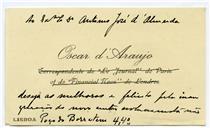 Ao Exmo Sr Antonio José d'Almeida
Oscar d'Araujo
Correspondente de "Le Journal" de Paris
et do "Financial News" de Londres
deseja as melhoras e felicita pela
do novo
LISBOA Poço do Borratem, 4, 4º